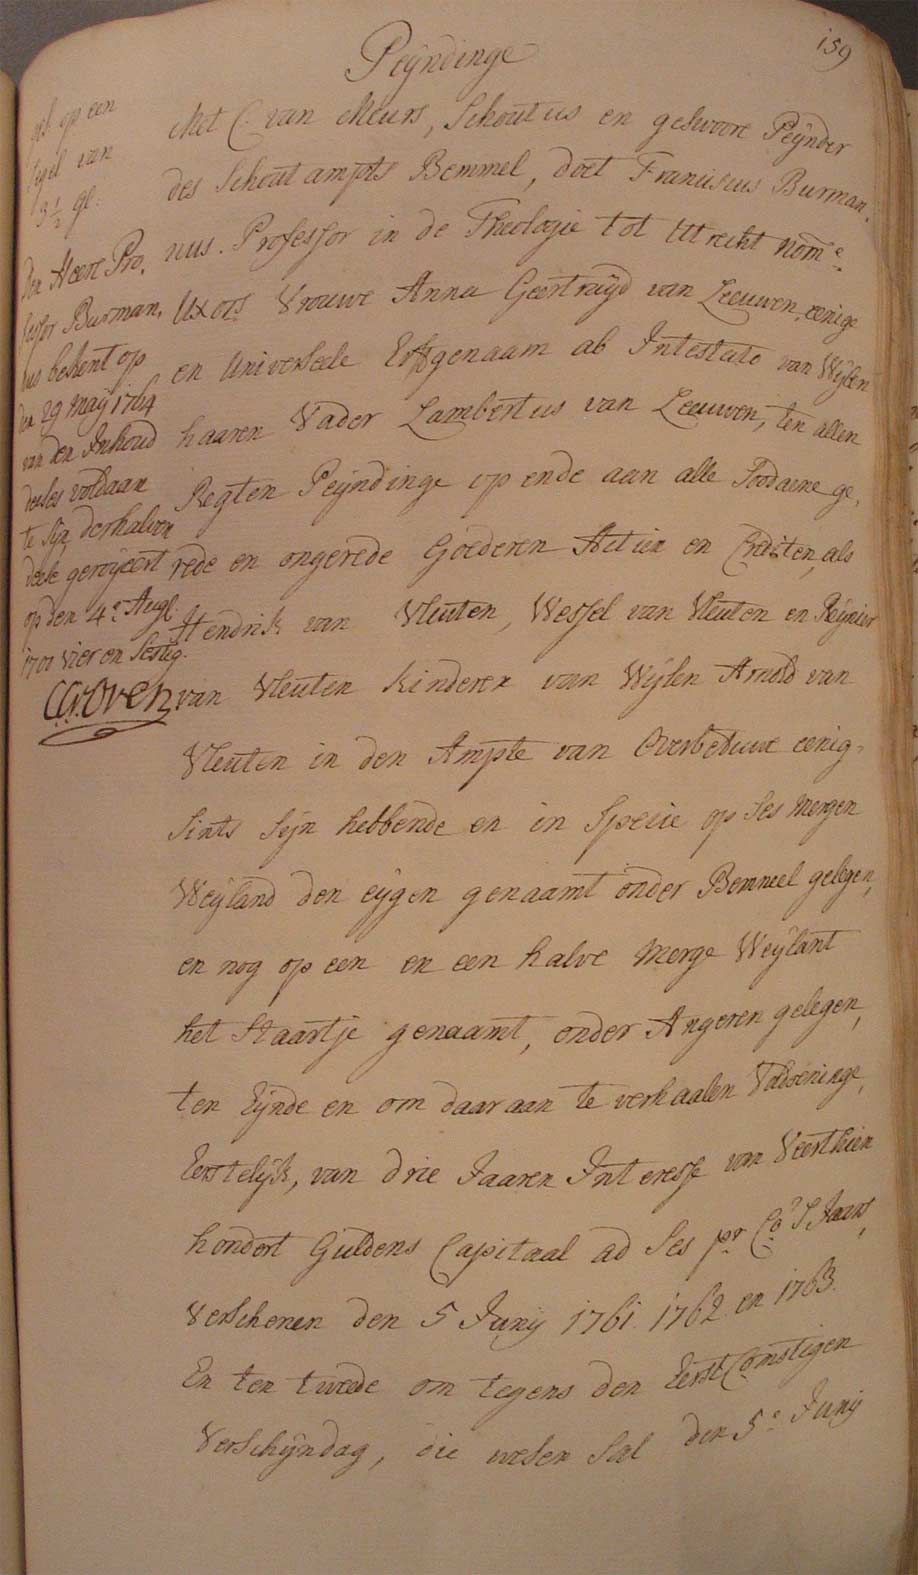 159
Peijndinge
Met C. van Meurs, Schoutus en geswoore Peijnder
des Schoutampts Bemmel, doet Franciscus Burman,
nus. Professor in de Theologie tot Utrecht nom.e
Uxors Vrouwe Anna Geertruijd van Leeuwen, eenige
en Universeele Erfgenaam ab Intestato van Wijlen
haaren Vader Lambertus van Leeuwen, ten allen
Regten Peijndinge op ende aan alle Soodaene ge,
rede en ongerede Goederen Actien en Crediten, als
Hendrik van Vleuten, Wessel van Vleuten en Reijnier
van Vleuten Kinderen van Wijlen Arnold van
Vleuten in den Ampte van Overbetuwe eenig,
Sints Sijn hebbende en in Specie op Ses Mergen
Weijland den eijgen genaamt onder Bemmel gelegen,
en nog op een en een halve Merge Weijlant
het Staartje genaamt, onder Angeren gelegen,
ten Eijnde en om daar aan te verhaalen Voldoeninge,
Eerstelijk, van drie Jaaren Interesse van Veerthien
hondert Guldens Capitaal ad Ses pr Co S Jaars,
Verschenen den 5 Junij 1761. 1762. en 1763.
En ten twede om tegens den Eerst Comstigen
Verschijndag, die wesen Sal den 5e Junij
op een
segel van
3 1/2 gl:
Den Heere Pro,
fessor Burman,
nus bekent op
den 29 Maij 1764
van den Inhoud
deeses voldaan
te Sijn, derhalven
deese geroijeert
op den 4e Augl.
1700 vier en Sestig.
C.G.v.Oven